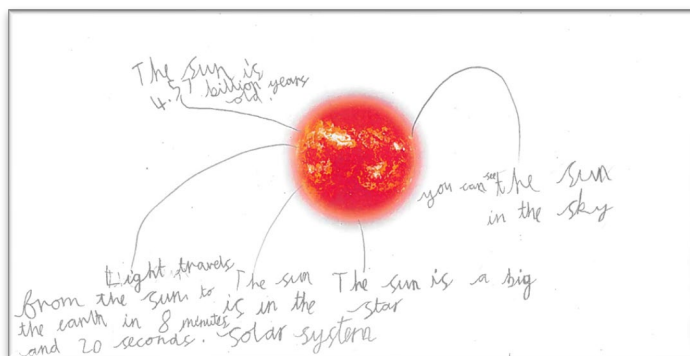 The sun is
4.57 billion years
old.
you can see the sun
in the sky
Light travels
from the sun to
the earth in 8 minutes
and 20 seconds.
The sun
is in the
solar system
The sun is a big
star